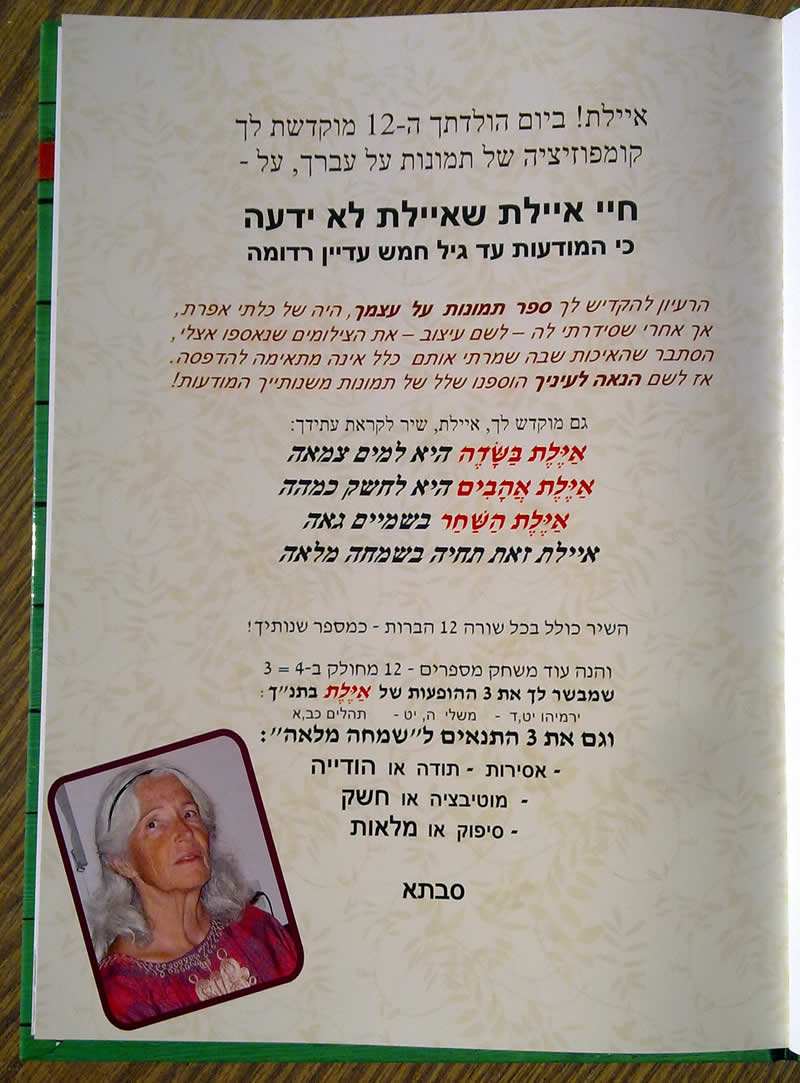 איילת! ביום הולדתך ה-12 מוקדשת לך
קומפוזיציה של תמונות על עברך, על -
חיי איילת שאיילת לא ידעה
כי המודעות עד גיל חמש עדיין רדומה
הרעיון להקדיש לך ספר תמונות על עצמך, היה של כלתי אפרת,
אך אחרי שסידרתי לה – לשם עיצוב – את הצילומים שנאספו אצלי,
הסתבר שהאיכות שבה שמרתי אותם כלל אינה מתאימה להדפסה.
אז לשם הנאה לעיניך הוספנו שלל של תמונות משנותייך המודעות!
גם מוקדש לך, איילת, שיר לקראת עתידך:
אַיֶּלֶת בַּשָּׂדֶה היא למים צמאה
אַיֶּלֶת אֲהָבִים היא לחשק כמהה
אַיֶּלֶת הַשַּׁחַר בשמיים גאה
איילת זאת תחיה בשמחה מלאה
השיר כולל בכל שורה 12 הברות - כמספר שנותיך!
והנה עוד משחק מספרים - 12 מחולק ב-4 = 3
שמבשר לך את 3 ההופעות של אַיֶּלֶת בתנ״ך:
ירמיהו יט,ד - משלי ה, יט - תהלים כב,א
וגם את 3 התנאים ל״שמחה מלאה״:
- אסירות - תודה או הודייה
- מוטיבציה או חשק
- סיפוק או מלאות
סבתא